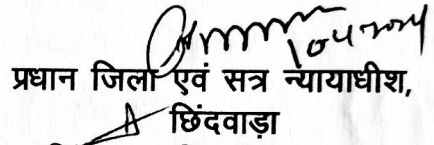 प्रधान जिला एवं सत्र न्यायाधीश,
छिंदवाड़ा